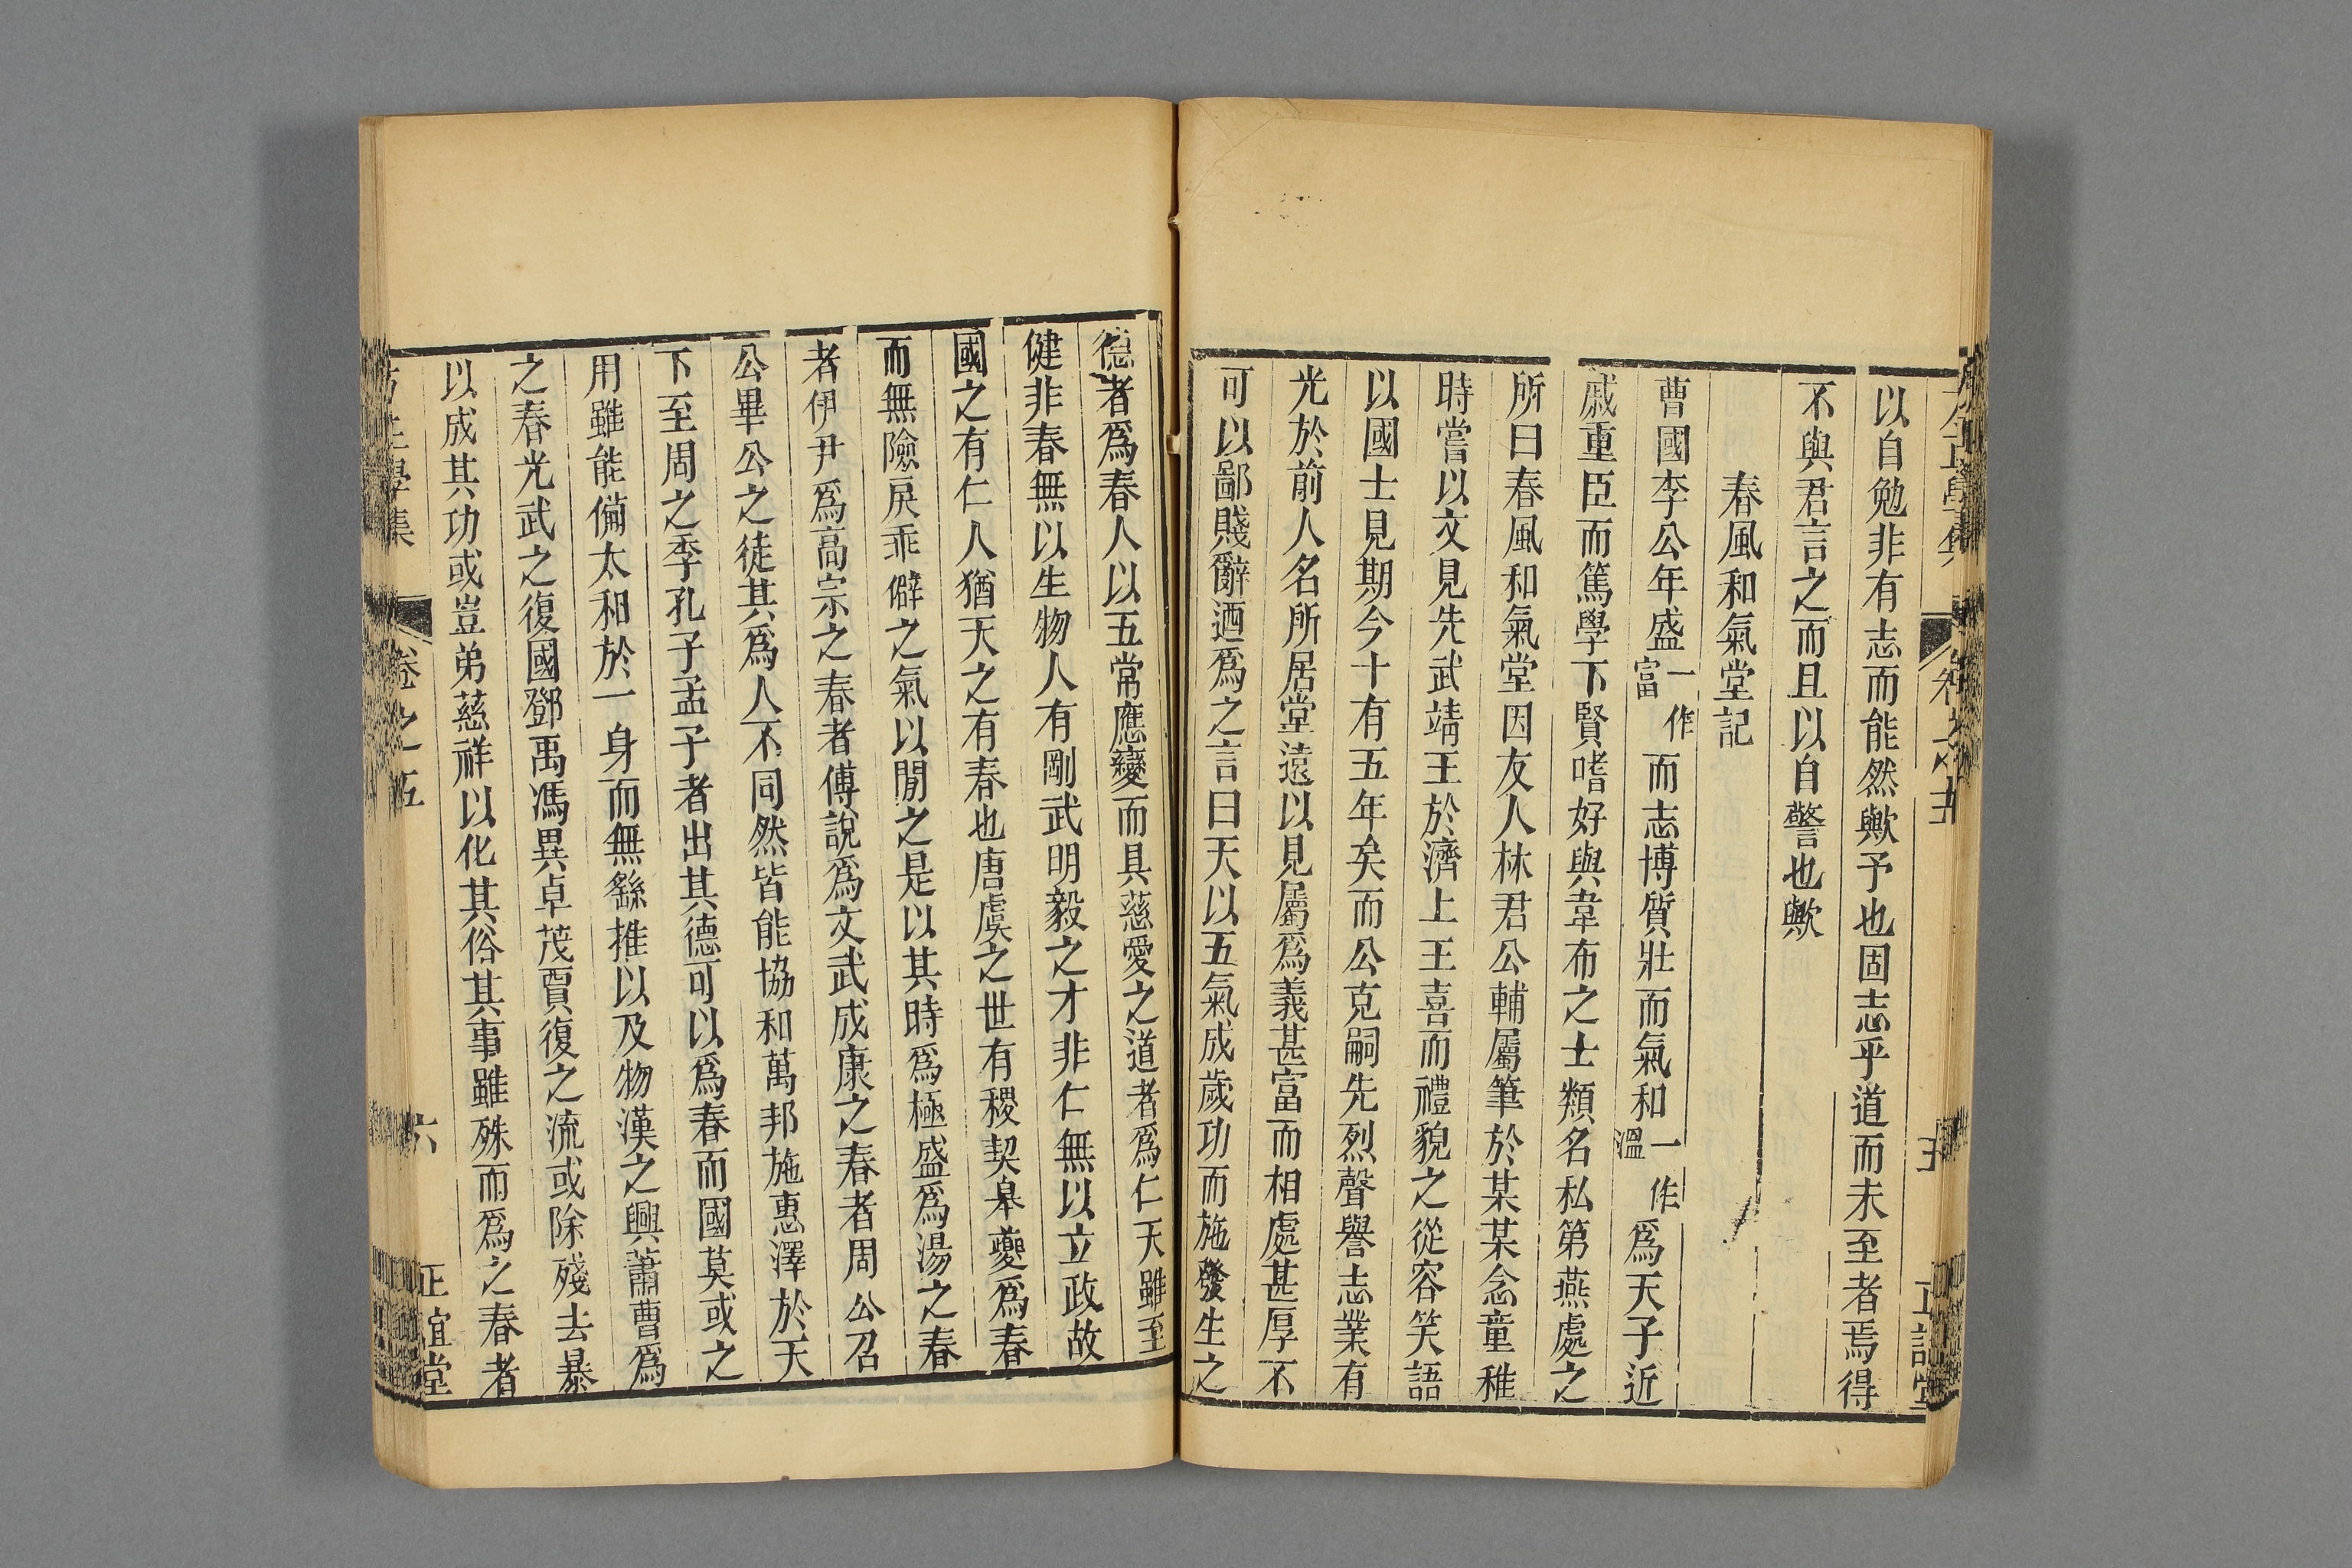 以自勉非有志而能然歟予也固志乎道而未至者焉得
不與君言之而且以自警也歟
春風和氣堂記
曹國李公年盛一作富而志博質壯而氣和一作溫爲天子近
戚重臣而篤學下賢嗜好與韋布之士類名私第燕處之
所曰春風和氣堂因友人林君公輔屬筆於某某念童稚
時嘗以文見先武靖王於濟上王喜而禮貌之從容笑語
以國士見期今十有五年矣而公克嗣先烈聲譽志業有
光於前人名所居堂遠以見屬爲義甚富而相處甚厚不
可以鄙賤辭迺爲之言曰天以五氣成歲功而施發生之
德者爲春人以五常應變而具慈愛之道者爲仁天雖至
健非春無以生物人有剛武明毅之才非仁無以立政故
國之有仁人猶天之有春也唐虞之世有稷契皋夔爲春
而無險戾乖僻之氣以閒之是以其時爲極盛爲湯之春
者伊尹爲高宗之春者傅說爲文武成康之春者周公召
公畢公之徒其爲人不同然皆能協和萬邦施惠澤於天
下至周之季孔子孟子者出其德可以爲春而國莫或之
用雖能備太和於一身而無繇推以及物漢之興蕭曹爲
之春光武之復國鄧禹馮異卓茂賈復之流或除殘去暴
以成其功或豈弟慈祥以化其俗其事雖殊而爲之春者
學集
卷之五
六
正誼堂